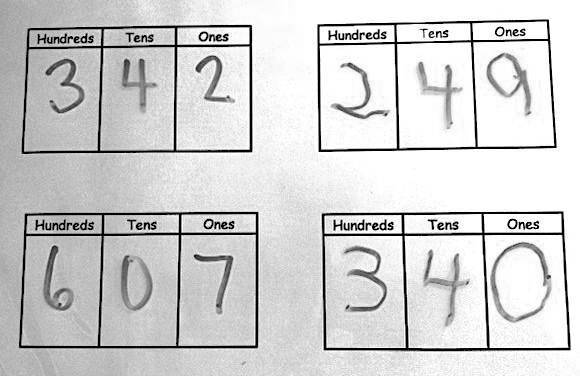 Hundreds Tens Ones
3 4 2
Hundreds Tens Ones
2 4 9
Hundreds Tens Ones
6 0 7
Hundreds Tens Ones
3 4 0